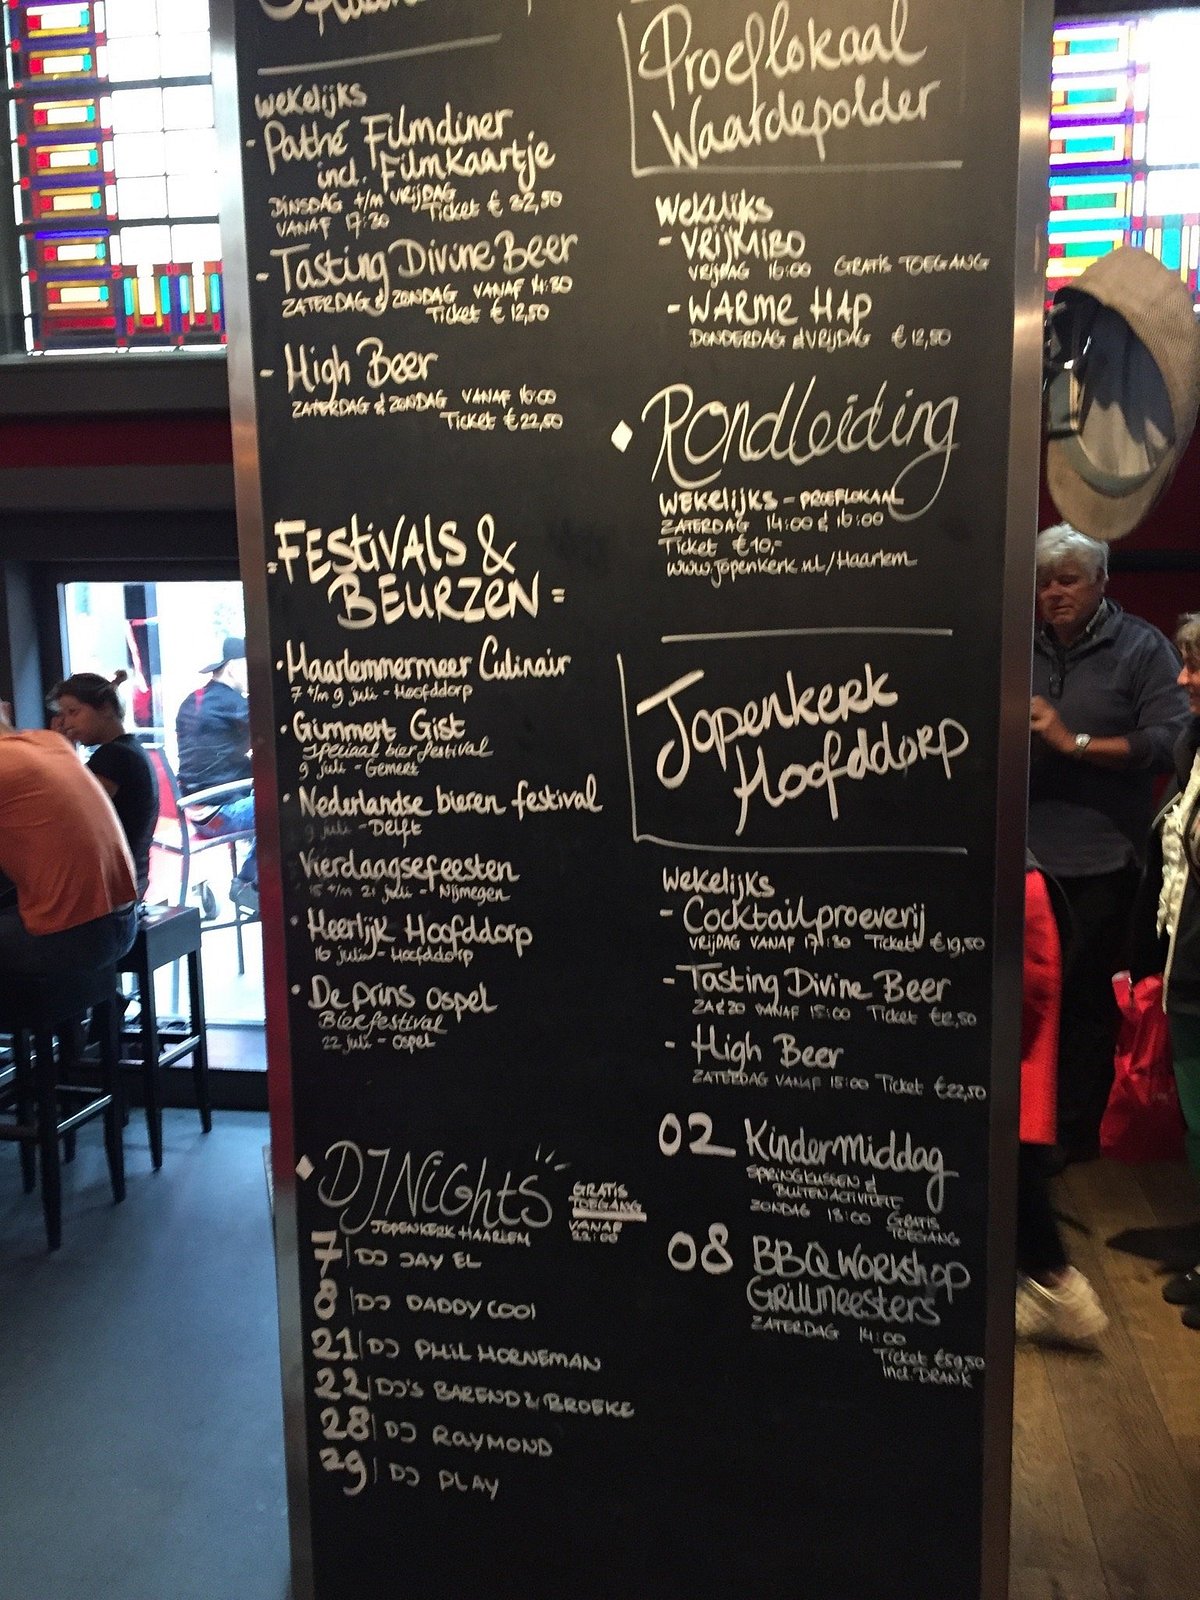 wekelijks
- Pathé Filmdiner
incl. Filmkaartje
DINSDAG t/m VRIJDAG
VANAF 17:30 Ticket € 32,50
- Tasting Divine Beer
ZATERDAG & ZONDAG VANAF 14:30
Ticket € 12,50
- High Beer
ZATERDAG & ZONDAG VANAF 16:00
Ticket € 22,50
= FESTIVALS &
BEURZEN =
• Haarlemmermeer Culinair
7 t/m 9 juli - Hoofddorp
• Gimmert Gist
Speciaal bier festival
9 juli - Gemert
• Nederlandse bieren festival
9 juli - Delft
Vierdaagsefeesten
15 t/m 21 juli - Nijmegen
• Heerlijk Hoofddorp
16 juli - Hoofddorp
• De Prins Ospel
Bierfestival
22 juli - Ospel
DJ NIGHTS
JOPENKERK HAARLEM
GRATIS
TOEGANG
VANAF
22:00
7 | DJ JAY EL
8 | DJ DADDY COOL
21 | DJ PHIL HORNEMAN
22 | DJ'S BAREND & BROEKE
28 | DJ RAYMOND
29 | DJ PLAY
Proeflokaal
Waarderpolder
Wekelijks
- VRIJMIBO
VRIJDAG 16:00 GRATIS TOEGANG
- WARME HAP
DONDERDAG & VRIJDAG € 12,50
Rondleiding
WEKELIJKS - PROEFLOKAAL
ZATERDAG 14:00 & 16:00
Ticket € 10,-
www.jopenkerk.nl/Haarlem
Jopenkerk
Hoofddorp
Wekelijks
- Cocktailproeverij
VRIJDAG VANAF 17:30 Ticket €19,50
- Tasting Divine Beer
ZA & ZO VANAF 15:00 Ticket €12,50
- High Beer
ZATERDAG VANAF 15:00 Ticket €22,50
02 Kindermiddag
SPRINGKUSSEN &
BUITENACTIVITEIT
ZONDAG 13:00 GRATIS
TOEGANG
08 BBQ WORKSHOP
Grillmeesters
ZATERDAG 14:00
Ticket €59,50
incl. DRANK